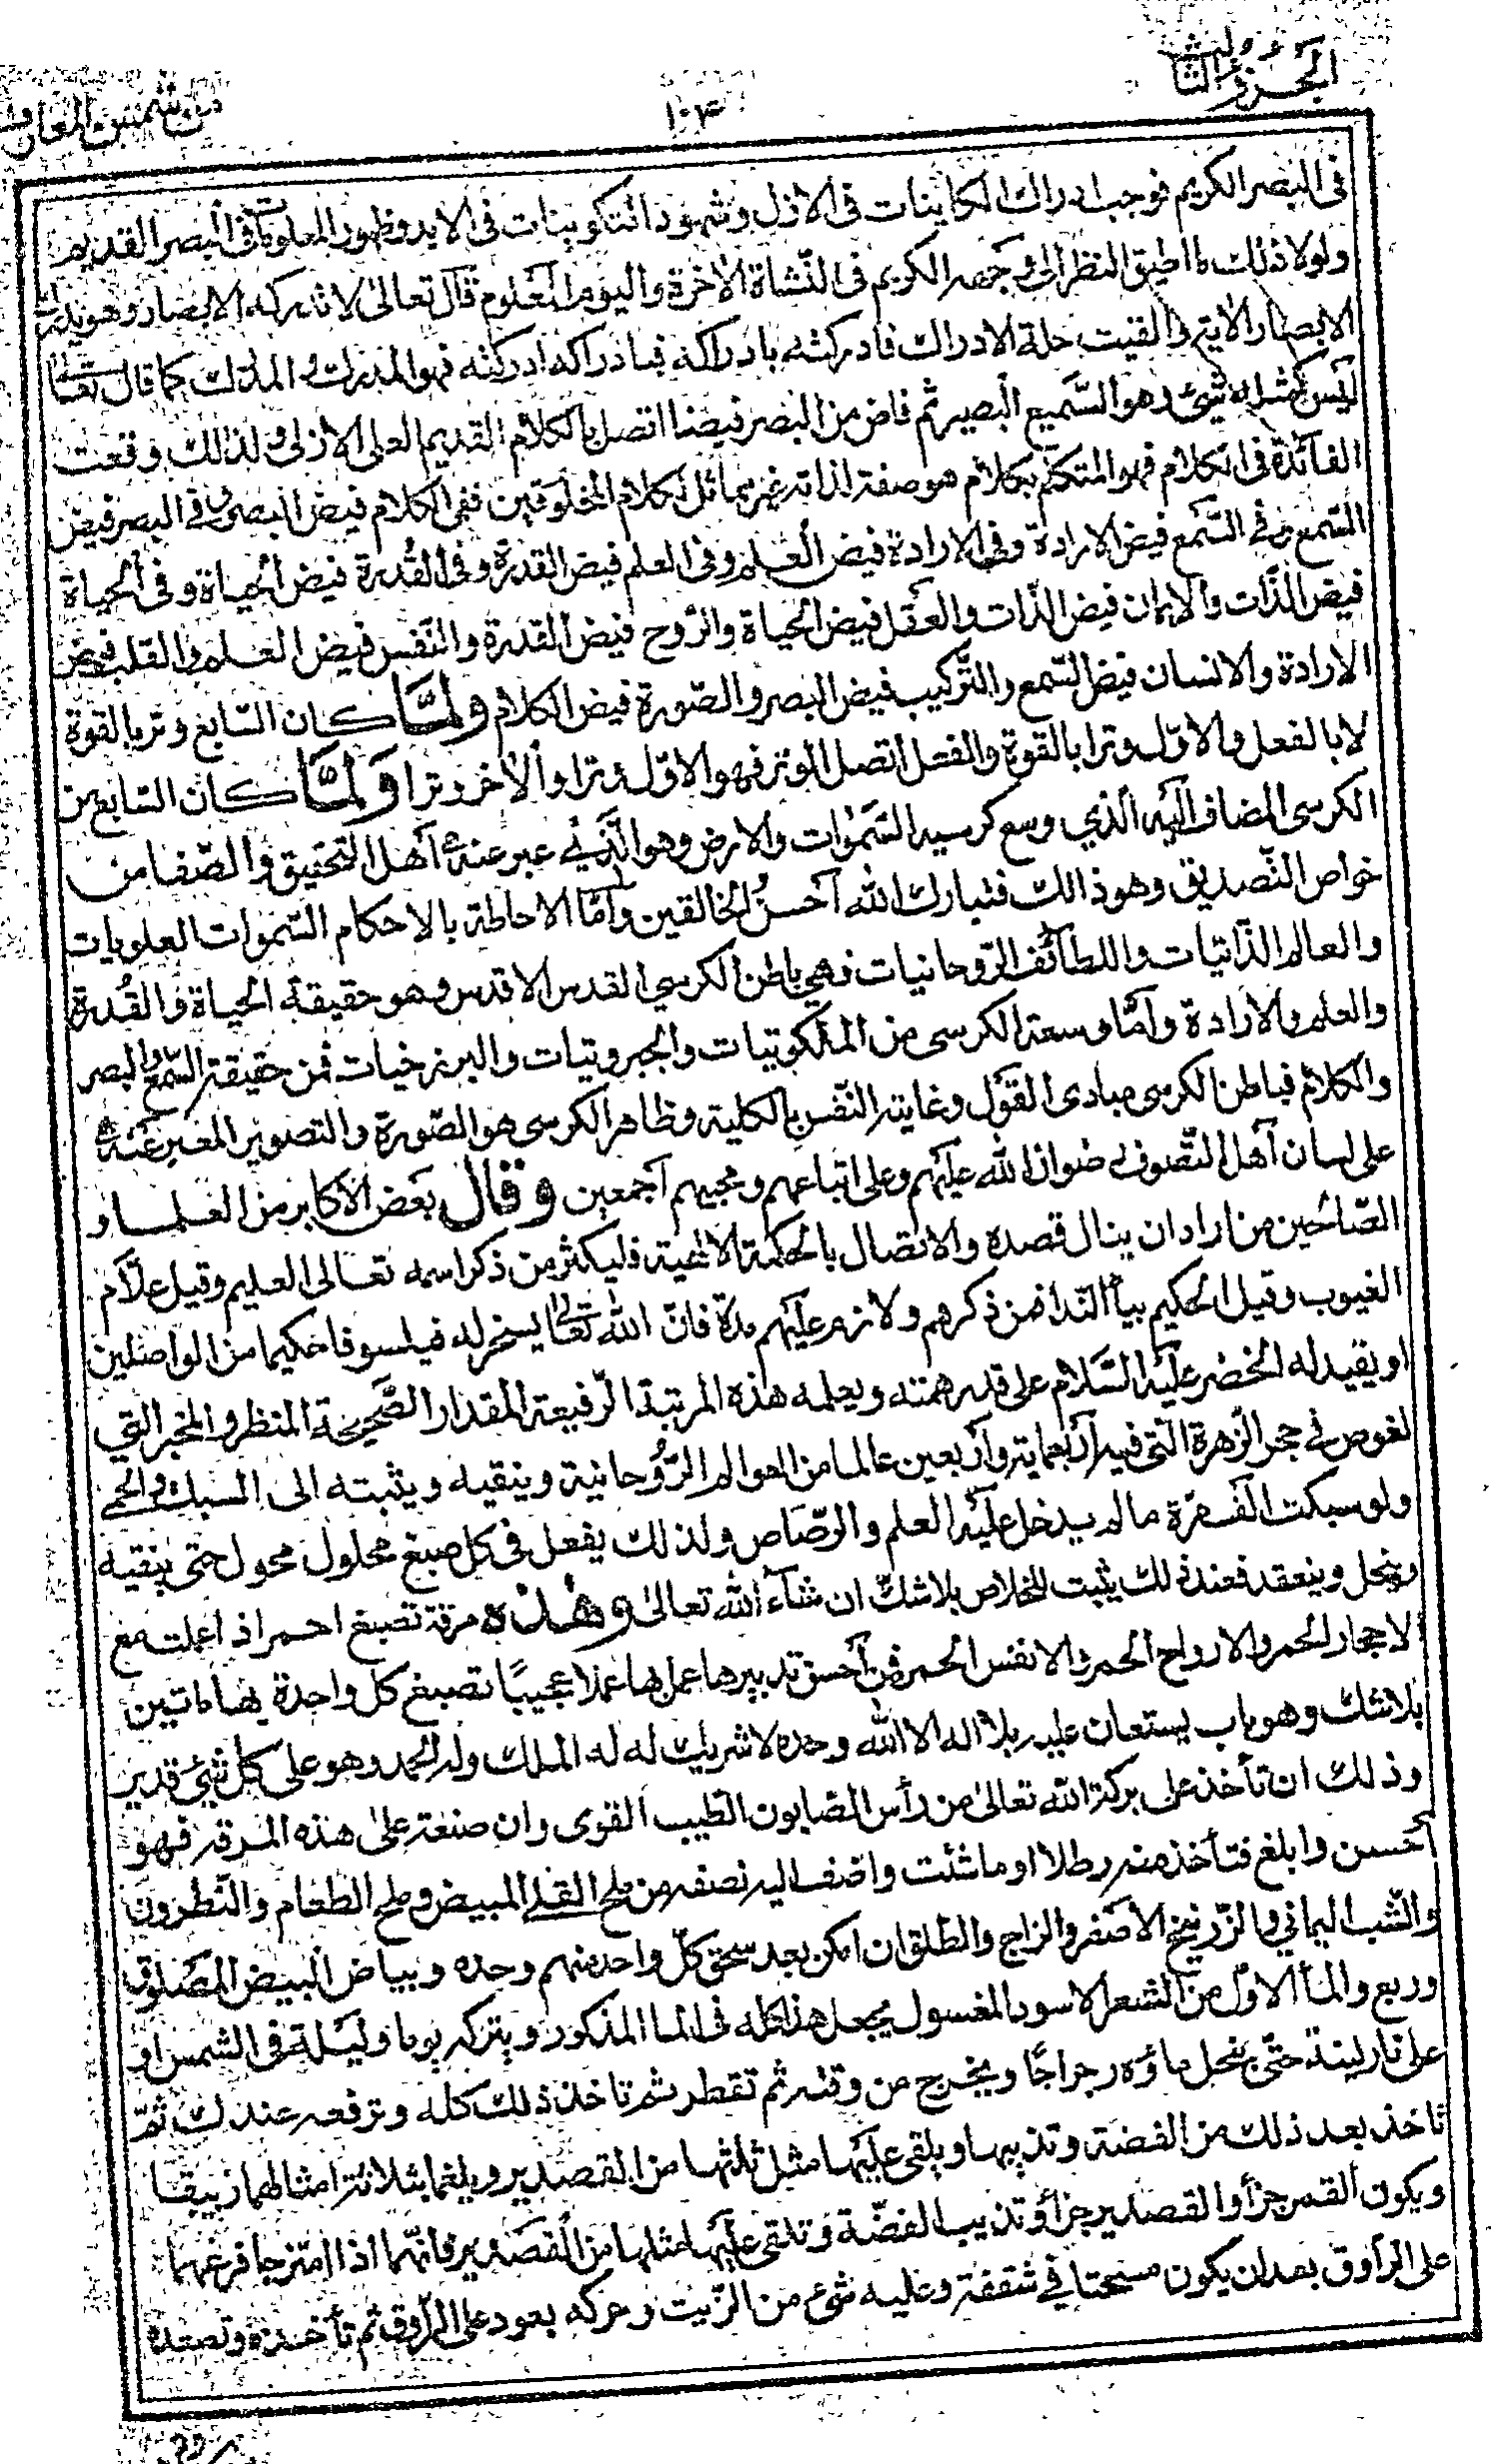 الجزؤ الثالث
١٠٣
من شمس المعارف
فى البصر الكريم فوجب ادراك الكاينات فى الازل وشهود التكوينات فى الابد وظهور المعلومات فى البصر القديم
ولولا ذلك ما اطيق النظر الى وجهه الكريم فى النشاة الاخرة واليوم المعلوم قال تعالى لا تدركه الابصار وهو يدرك
الابصار الاية والقيت حلة الادراك فادركته بادراكه فبادراكه ادركته فهو المدرك والمدرك كما قال تعالى
ليس كمثله شئ وهو السميع البصير ثم فاض من البصر فيضا اتصل بالكلام القديم العلى الازلى ولذلك وقعت
الفائدة فى الكلام فهو المتكلم بكلام هو صفة لذاته غير مماثل لكلام المخلوقين ففى الكلام فيض البصر وفى البصر فيض
السمع وفى السمع فيض الارادة وفى الارادة فيض العلم وفى العلم فيض القدرة وفى القدرة فيض الحياة وفى الحياة
فيض الذات والايمان فيض الذات والعقل فيض الحياة والروح فيض القدرة والنفس فيض العلم والقلب فيض
الارادة والانسان فيض السمع والتركيب فيض البصر والصورة فيض الكلام ولما كان السابع وتر بالقوة
لا بالفعل والاول وترا بالقوة والفعل اتصل الوتر فهو الاول وترا والاخر وترا ولما كان السابع من
الكرسى المضاف اليه الذي وسع كرسيه السموات والارض وهو الذي عبر عنه اهل التحقيق والصفا من
خواص التصديق وهو ذالك فتبارك الله احسن الخالقين واما الاحاطة بالاحكام السموات العلويات
والعالم الذاتيات واللطائف الروحانيات فهي باطن الكرسي القدس الاقدس وهو حقيقة الحياة والقدرة
والعلم والارادة واما وسعة الكرسى من الملكوتيات والجبروتيات والبرزخيات فمن حقيقة السمع والبصر
والكلام فباطن الكرسى مبادى القول وغاية النفس بالكلية وظاهر الكرسى هو الصورة والتصوير المعبر عنه
على لسان اهل التصوف رضوان الله عليهم وعلى اتباعهم ومحبيهم اجمعين وقال بعض الاكابر من العلماء و
الصالحين من اراد ان ينال قصده والاتصال بالحكمة الالهية فليكثر من ذكر اسمه تعالى العليم وقيل علام
الغيوب وقيل الحكيم بيا الندا فمن ذكرهم ولازم عليهم مدة فان الله تعالى يسخر له فيلسوفا حكيما من الواصلين
او يقيد له الخضر عليه السلام على قدر همته ويعلمه هذه المرتبة الرفيعة المقدار الصحيحة المنظر والمخبر التي
لغوص فى حجر الزهرة التى فيه اربعماية واربعين عالما من العوالم الروحانية وينقيه ويثبته الى السبك والحمى
ولو سبكت الف مرة ما لم يدخل عليه العلم والرصاص ولذلك يفعل فى كل صبغ محلول محول حتى ينقيه
وينحل وينعقد فعند ذلك يثبت للخلاص بلا شك ان شاء الله تعالى وهذه مرقة تصبغ احمر اذ اعملت مع
الاحجار الحمر والارواح الحمر والانفس الحمر فمن احسن تدبيرها عمل بها عملا عجيبا تصبغ كل واحدة بها ماتين
بلا شك وهو باب يستعان عليه بلا اله الا الله وحده لا شريك له له الملك وله الحمد وهو على كل شئ قدير
وذلك ان تأخذ على بركة الله تعالى من رأس الصابون الطيب القوى وان صنعته على هذه المرقة فهو
احسن وابلغ فتأخذ منه رطلا او ما شئت واضف اليه نصفه من ملح القلى المبيض وملح الطعام والنطرون
والشب اليماني والزرنيخ الاصفر والزاج والطلق ان امكن بعد سحق كل واحد منهم وحده وبياض البيض المصلوق
وربع والما الاول من الشعر الاسود المغسول يجعل هذا كله فى الما المذكور ويتركه يوما وليلة فى الشمس او
على نار لينة حتى ينحل ماؤه رجراجا ويخرج من وقته ثم تقطر ثم تاخذ ذلك كله وترفعه عندك ثم
تاخذ بعد ذلك من الفضة وتذيبها ويلقى عليها مثل ثلثها من القصدير ويلغما بثلاثة امثالهما زيبقا
ويكون القمر جزأ والقصدير جزأ وتذيب الفضة وتلقى عليها مثلها من القصدير فانهما اذا امتزجا فرغهما
على الراوق بعد ان يكون مسبحتا في شقفة وعليه شئ من الزيت وحركه بعود على الراوق ثم تأخذه وتصعده